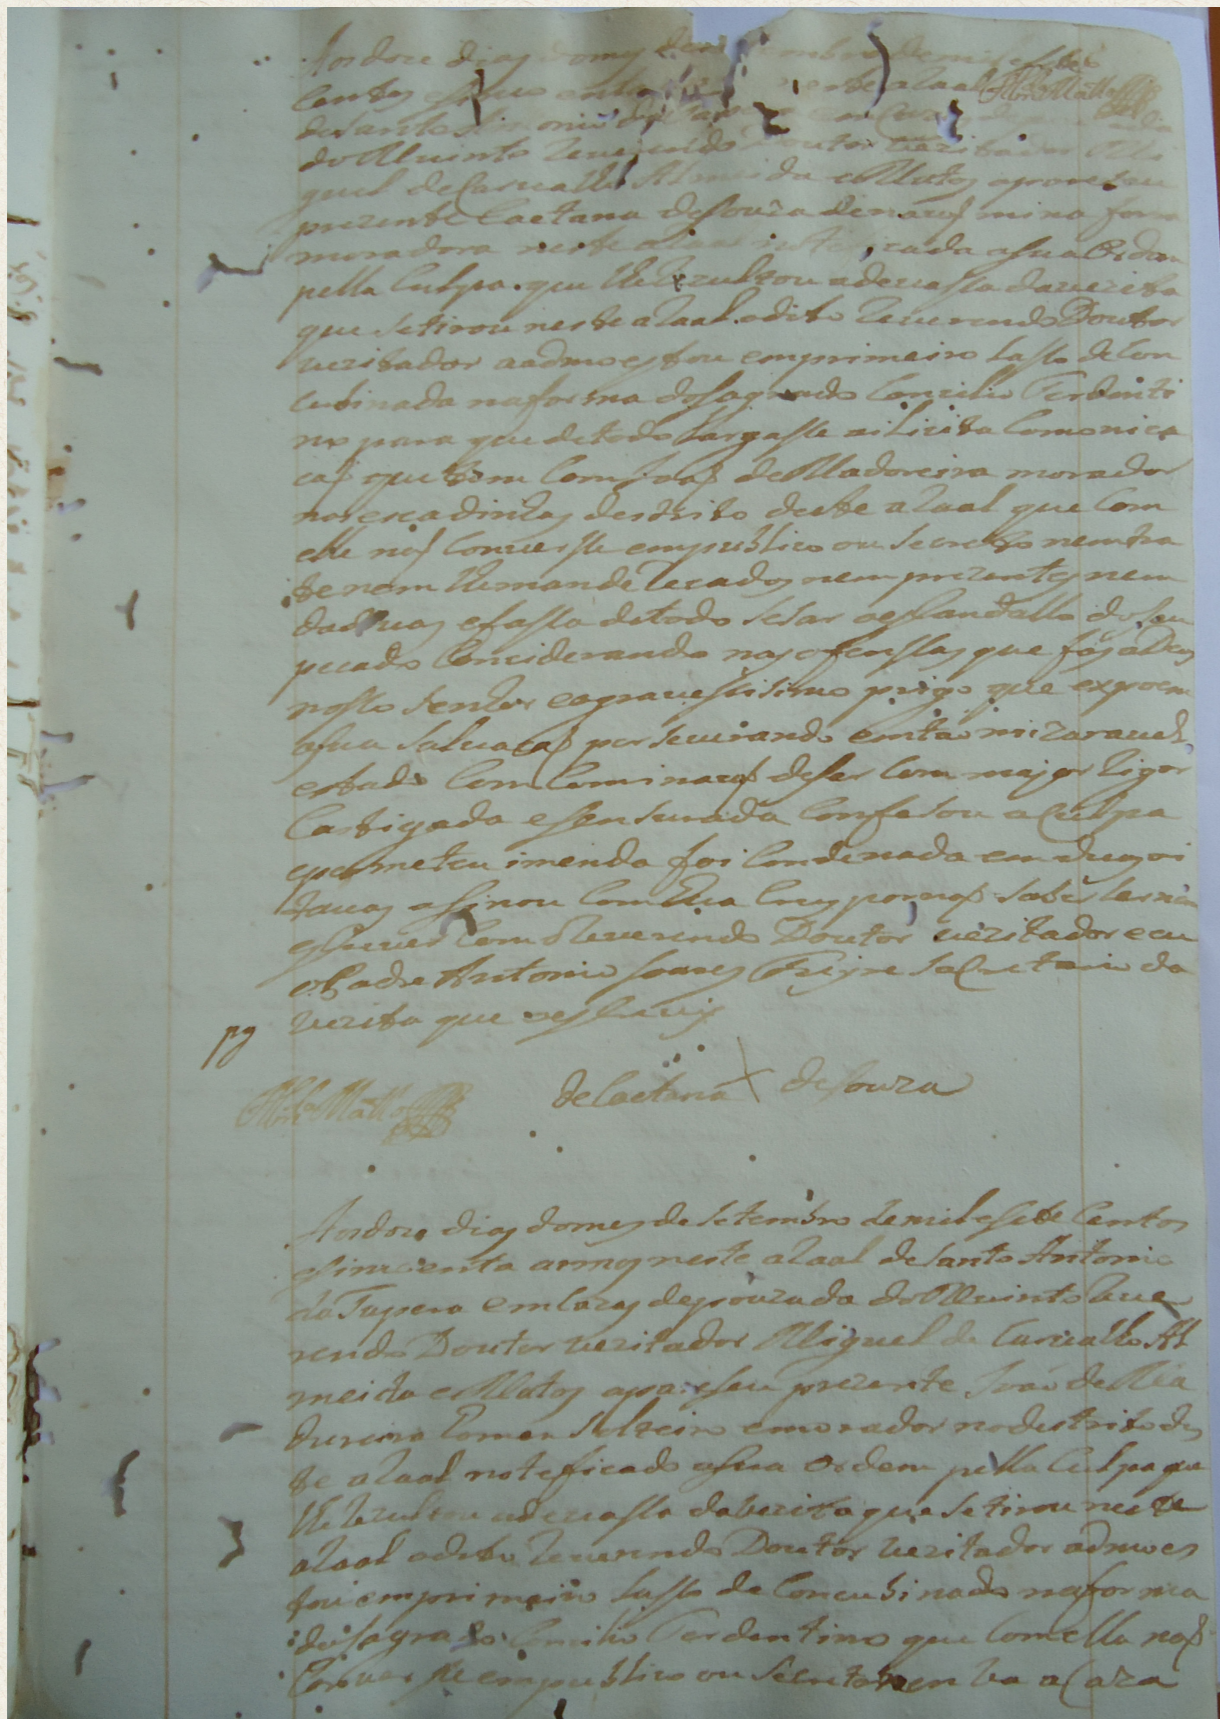 Aos doze dias do mes de tembro de mil e sete
centos e sinco enta neste aRaal
de Santo Antonio da
do Muinto Reuerendo Doutor vezitador Mi
guel de Carualho Almeida e Matos apareseu
prezente Caetana de Souza de nasaõ mina forra
moradora neste aRaal noteficada a sua ordem
pella culpa que lhe Rezultou a deuassa da uezita
que se tirou neste aRaal o dito Reuerendo Doutor
uezitador a admoestou em primeiro lapso de con
cubinada na forma do Sagrado Concilio Terdenti
no para que de todo largasse a ilicita comonica
caõ que tem com Joaõ de Madoreira morador
nos districto deste aRaal que com
elle naõ conuersse em publico ou secreto nem tra
te nem lhe mande Recados nem prezentes nem
dadiuas e fassa de todo sesar o escandallo do seu
pecado Conciderando nas ofenssas que fas a Deus
nosso Senhor e a grauessisimo prigo que expoem
a sua saluacaõ perseuerando em taõ mizarauel
estado com cominacaõ de ser com major Rigor
Castigada e sensurada confesou a culpa
e permeteu imenda foi condenada em
tauas e asinou com hua crus por naõ saber ler nem
escreuer com o Reuerendo Doutor uezitador e eu
o Padre Antonio Soares Freyre sacretario da
uezita que o escreuy
pg
de Caetana X de Souza
Aos doze dias do mes de setembro de mil e sete centos
e sincoenta annos neste aRaal de Santo Antonio
da Tapera em cazas de pouzada do Muinto Reue
rendo Doutor uezitador Miguel de Carualho Al
meida e Matos apareseu prezente Joaõ de Ma
dureira homem solteiro e morador no destrito des
te aRaal noteficado a sua ordem pella culpa que
lhe Rezultou a deuassa da uezita que se tirou neste
aRaal o dito Reuerendo Doutor uezitador admoes
tou em primeiro lapso de concubinado na forma
do Sagrado Concilio Terdentino que com ella naõ
conuersse em publico ou secreto nem ua a caza